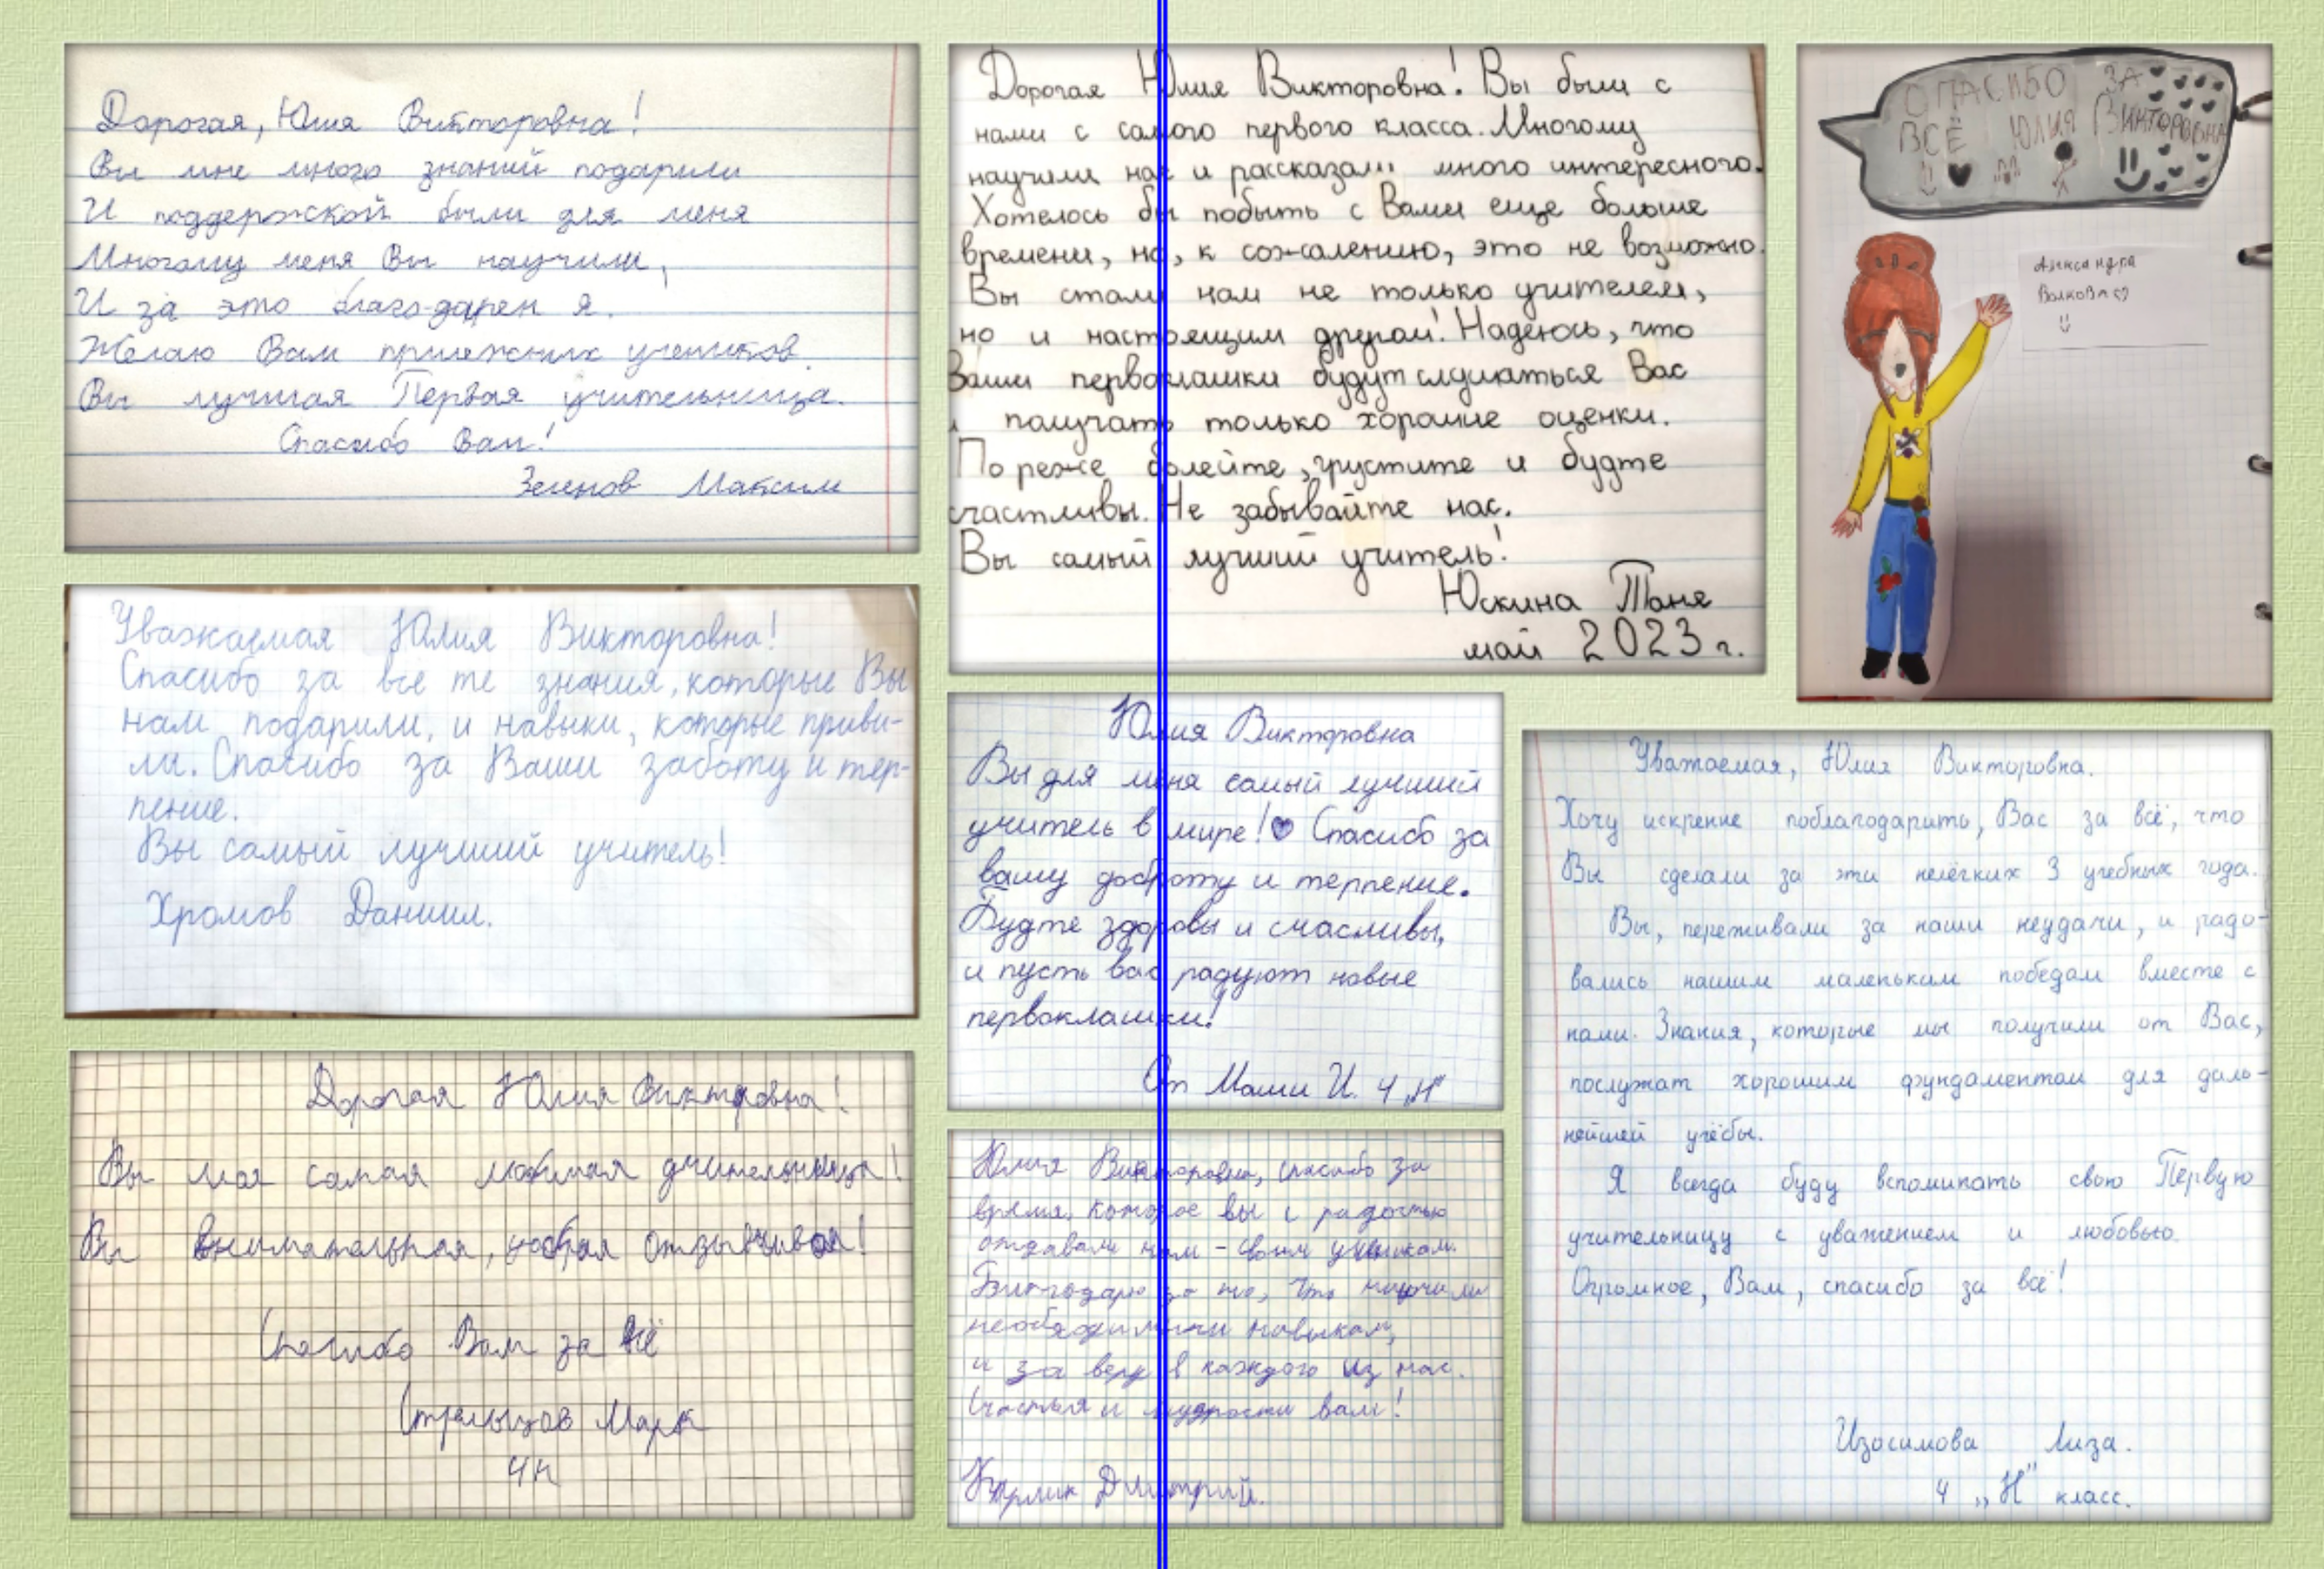 Дорогая, Юлия Викторовна!
Вы мне много знаний подарили
И поддержской были для меня
Многому меня Вы научили,
И за это благо-дарен я.
Желаю Вам прилежных учеников.
Вы лучшая Первая учительница.
Спасибо Вам!
Зеленов Максим
Уважаемая Юлия Викторовна!
Спасибо за все те знания, которые Вы
нам подарили, и навыки, которые приви-
ли. Спасибо за Ваши заботу и тер-
пение.
Вы самый лучший учитель!
Хромов Даниил.
Дорогая Юлия Викторовна!
Вы моя самая любимая учительница!
Вы внимательная, добрая отзывчивая!
Спасибо Вам за всё
Стрельцов Марк
4н
Дорогая Юлия Викторовна! Вы были с
нами с самого первого класса. Многому
научили нас и рассказали много интересного.
Хотелось бы побыть с Вами еще больше
времени, но, к сожалению, это не возможно.
Вы стали нам не только учителем,
но и настоящим другом! Надеюсь, что
Ваши первоклашки будут слушаться Вас
и получать только хорошие оценки.
По реже болейте, грустите и будте
счастливы. Не забывайте нас.
Вы самый лучший учитель!
Юскина Таня
май 2023 г.
Юлия Викторовна
Вы для меня самый лучший
учитель в мире! Спасибо за
вашу доброту и терпение.
Будте здоровы и счасливы,
и пусть вас радуют новые
первоклашки!
От Маши И. 4 „Н"
Юлия Викторовна, спасибо за
время, которое вы с радостью
отдавали нам - своим ученикам.
Благодарю за то, что научили
необходимыми навыкам,
и за веру в каждого из нас.
Счастья и мудрости вам!
Дмитрий.
СПАСИБО ЗА
ВСЁ ЮЛИЯ ВИКТОРОВНА
Александра
Волкова
Уважаемая, Юлия Викторовна.
Хочу искренне поблагодарить, Вас за всё, что
Вы сделали за эти нелёгких 3 учебных года.
Вы, переживали за наши неудачи, и радо-
вались нашим маленьким победам вместе с
нами. Знания, которые мы получили от Вас,
послужат хорошим фундаментом для даль-
нейшей учёбы.
Я всегда буду вспоминать свою Первую
учительницу с уважением и любовью.
Огромное, Вам, спасибо за всё!
Изосимова Лиза.
4 „Н" класс.